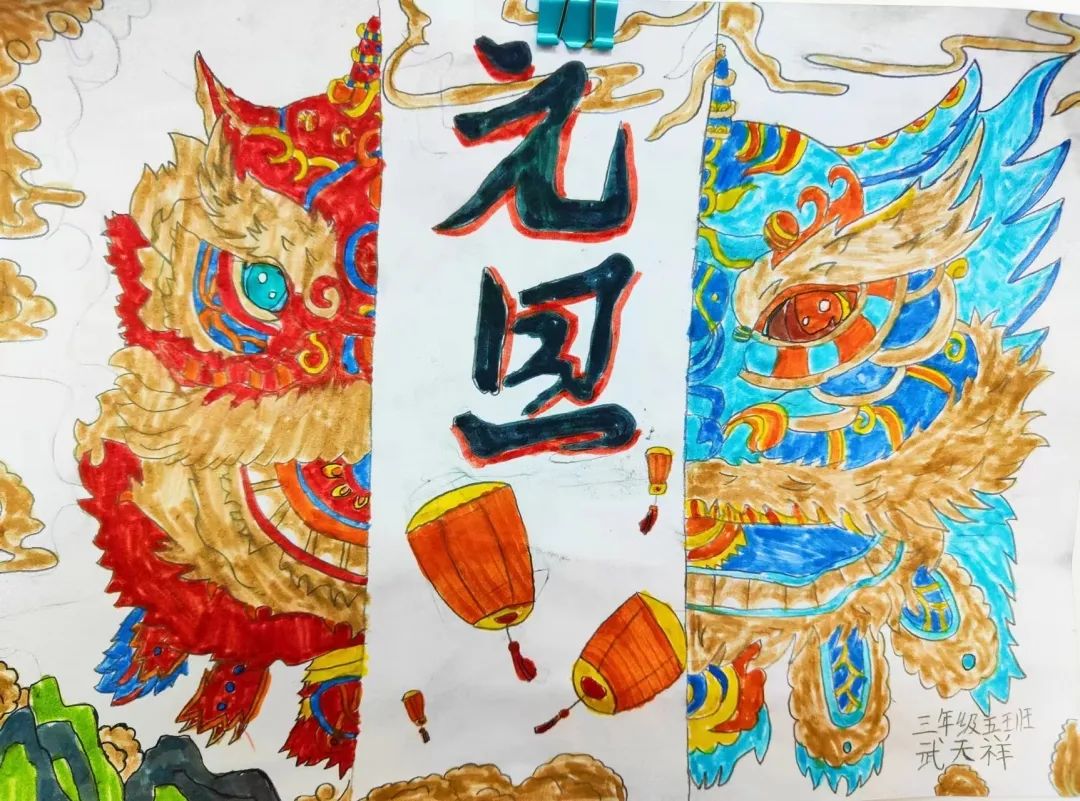 元旦
三年级五班
武天祥